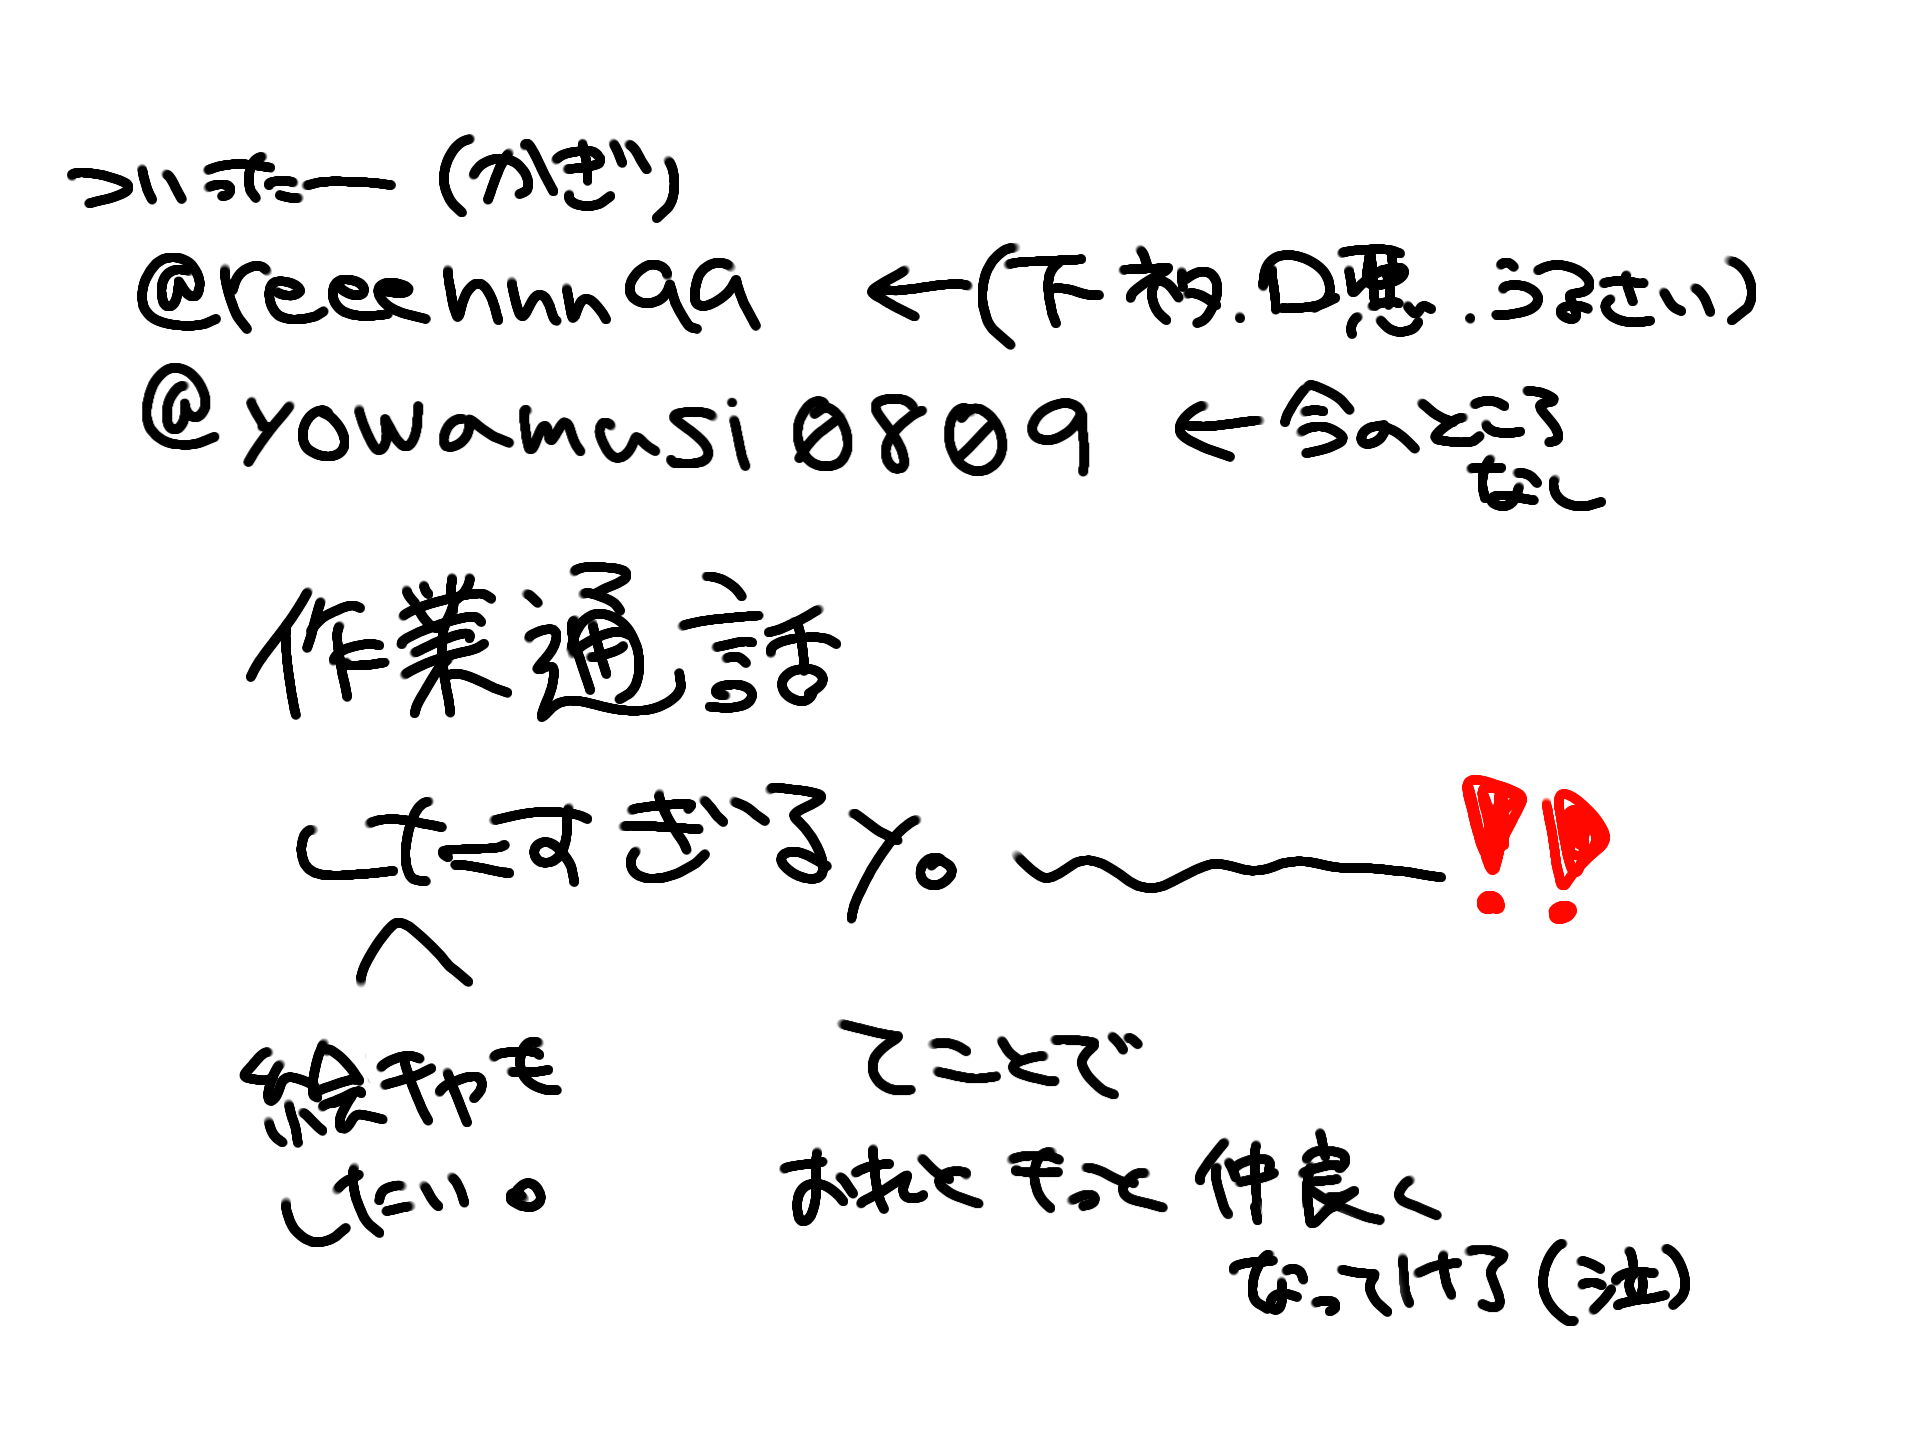 ついったー(かぎ)
@reeehnn99 ←(下ネタ.口悪.うるさい)
@yowamusi0809 ←今のところ
なし
作業通話
したすぎるy。〜!!
へ
絵チャも
したい。
てことで
おれともっと仲良く
なってけろ(泣)